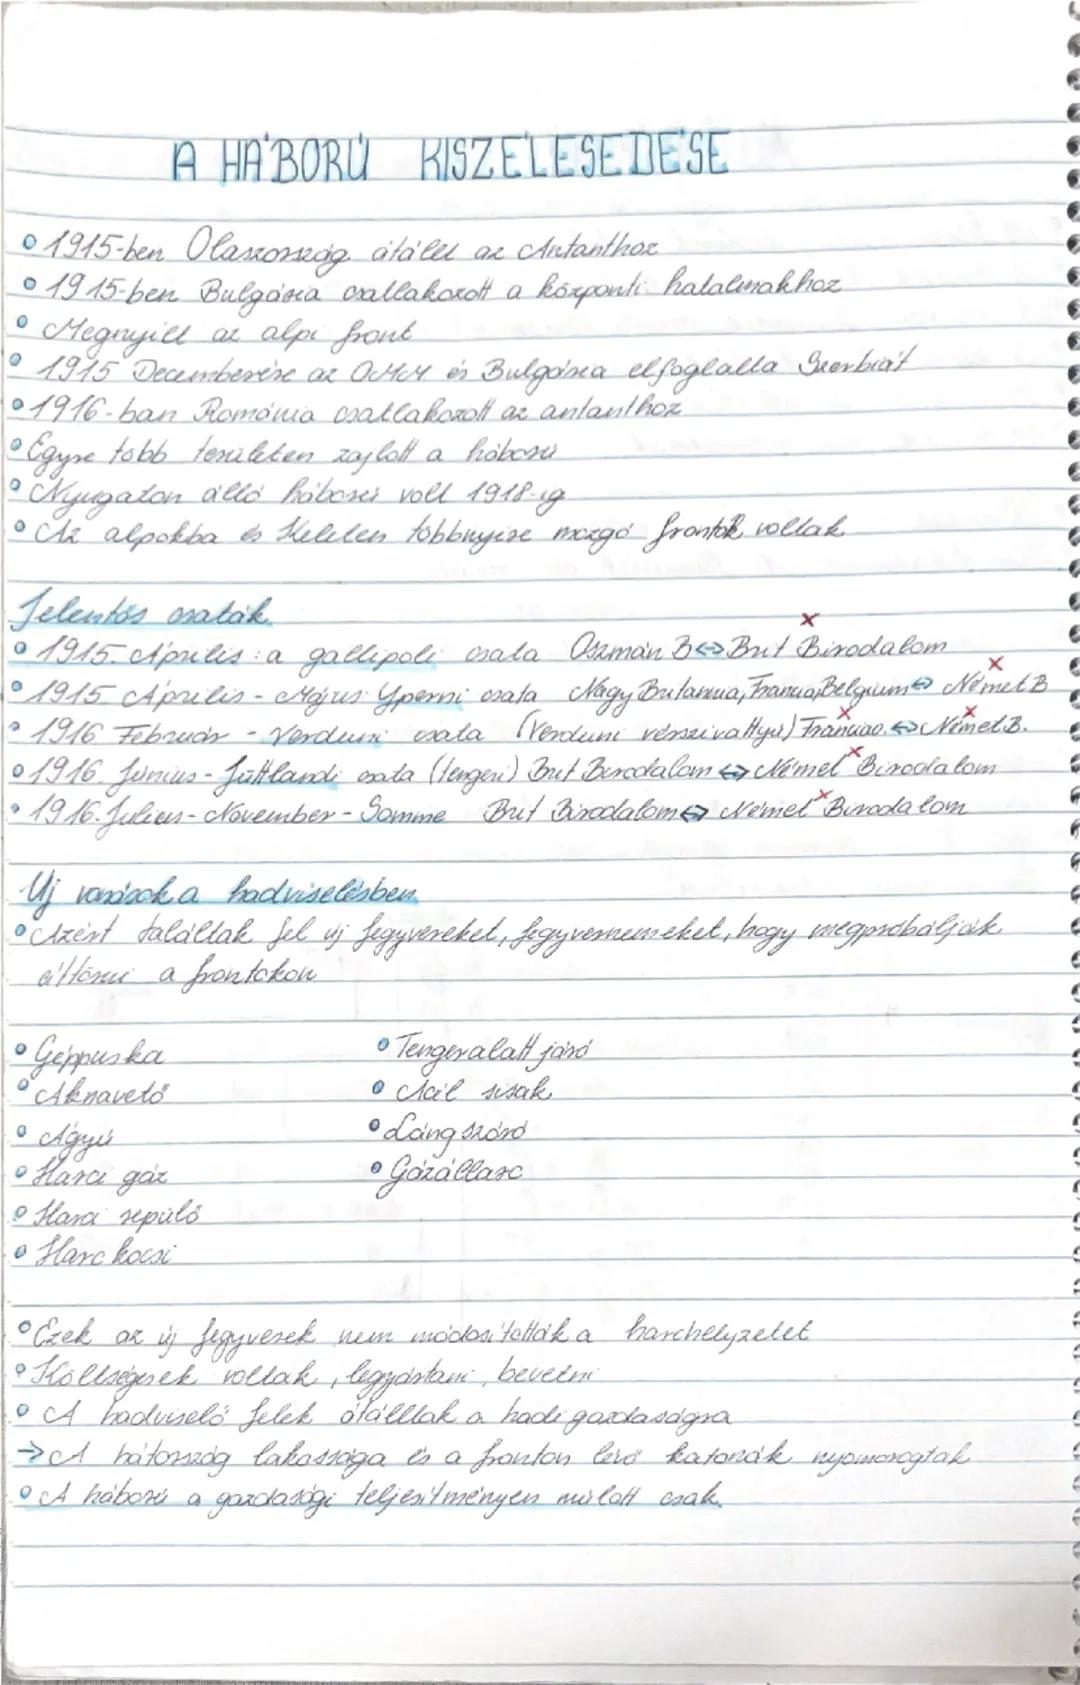 A HÁBORÚ KISZÉLESEDÉSE
1915-ben Olaszország átállt az Antanthoz
1915-ben Bulgária csatlakozott a központi hatalmakhoz
Megnyílt az alpi front
1915 Decemberére az OMM és Bulgária elfoglalta Szerbiát
1916-ban Románia csatlakozott az antanthoz
Egyre több területen zajlott a háború
Nyugaton álló háború volt 1918-ig
Az alpokba és Keleten többnyire mozgó frontok voltak
Jelentős csaták
1915. Április: a gallipoli csata Oszmán B ⇔ Brit Birodalom
1915 Április - Május: Yperni csata Nagy Britannia, Francia, Belgium ⇔ Német B
1916 Február - Verduni csata (Verduni vérszivattyú) Franciao. ⇔ Német B.
1916. Június - Jüttlandi csata (tengeri) Brit Birodalom ⇔ Német Birodalom
1916. Július - November - Somme Brit Birodalom ⇔ Német Birodalom
Új vonások a hadviselésben
Azért találtak fel új fegyvereket, fegyvernemeket, hogy megpróbálják
áttörni a frontokon
Géppuska
Tengeralatt járó
Aknavető
Acél sisak
Ágyú
Láng szóró
Harci gáz
Gázállarc
Harci repülő
Harc kocsi
Ezek az új fegyverek nem módosították a harchelyzetet
Költségesek voltak, legyártani, bevetni
A hadviselő felek átálltak a hadi gazdaságra
→ A hátország lakossága és a fronton lévő katonák nyomorogtak
A háború a gazdasági teljesítményen múlott csak.